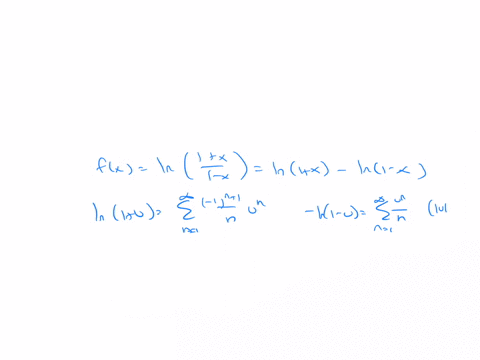 f(x) = ln ( (1+x)/(1-x) ) = ln(1+x) - ln(1-x)
ln(1+u) = ∑_{n=1}^{∞} (-1)^{n+1}/n u^n    -ln(1-u) = ∑_{n=1}^{∞} u^n/n (|u|